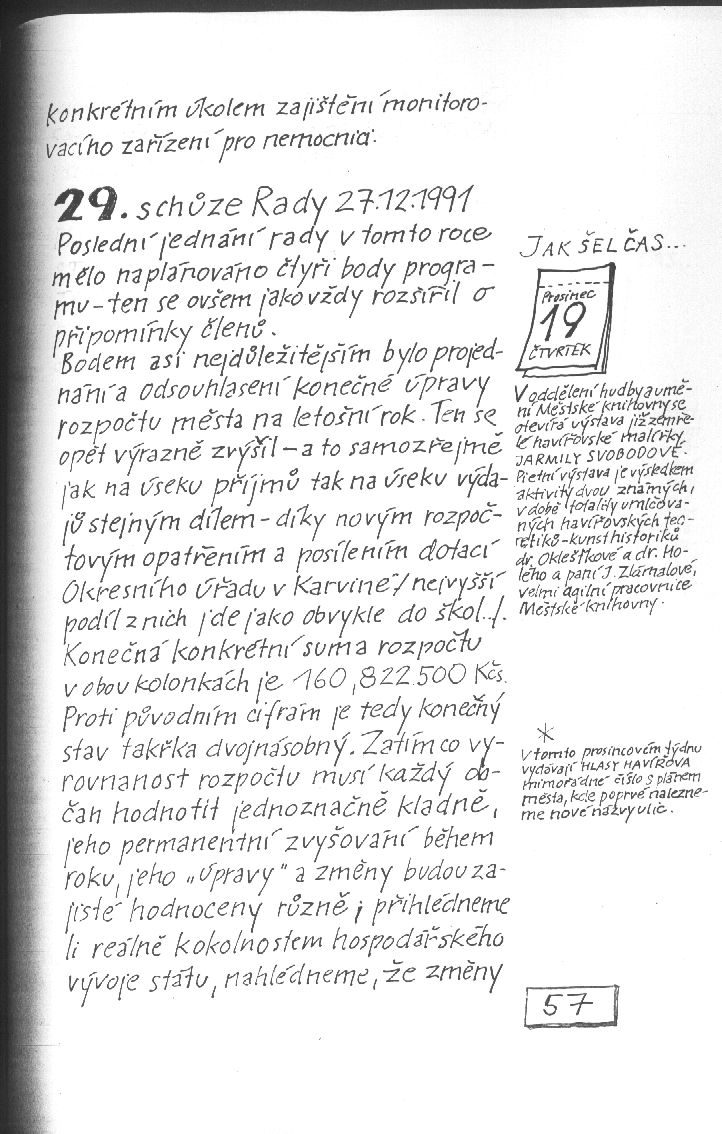 konkrétním úkolem zajištění monitoro-
vacího zařízení pro nemocnici.
29. schůze Rady 27.12.1991
Poslední jednání rady v tomto roce
mělo naplánováno čtyři body progra-
mu - ten se ovšem jako vždy rozšířil o
připomínky členů.
Bodem asi nejdůležitějším bylo projed-
nání a odsouhlasení konečné úpravy
rozpočtu města na letošní rok. Ten se
opět výrazně zvýšil - a to samozřejmě
jak na úseku příjmů tak na úseku výda-
jů stejným dílem - díky novým rozpoč-
tovým opatřením a posílením dotací
Okresního úřadu v Karviné /nejvyšší
podíl z nich jde jako obvykle do škol../.
Konečná konkrétní suma rozpočtu
v obou kolonkách je 160,822.500 Kčs.
Proti původním cifrám je tedy konečný
stav takřka dvojnásobný. Zatímco vy-
rovnanost rozpočtu musí každý ob-
čan hodnotit jednoznačně kladně,
jeho permanentní zvyšování během
roku, jeho „úpravy" a změny budou za-
jisté hodnoceny různě; přihlédneme
li reálně k okolnostem hospodářského
vývoje státu, nahlédneme, že změny
JAK ŠEL ČAS...
Prosinec
19
ČTVRTEK
V oddělení hudby a umě-
ní Městské knihovny se
otevírá výstava již zemře-
lé havířovské malířky
JARMILY SVOBODOVÉ.
Pietní výstava je výsledkem
aktivity dvou známých,
v době totality umlčova-
ných havířovských teo-
retiků - kunsthistoriků
dr. Oklešťkové a dr. Ho-
lého a paní J. Zlámalové,
velmi agilní pracovnice
Městské knihovny.
*
V tomto prosincovém týdnu
vydávají HLASY HAVÍŘOVA
mimořádné číslo s plánem
města, kde poprvé nalezne-
me nové názvy ulic.
57